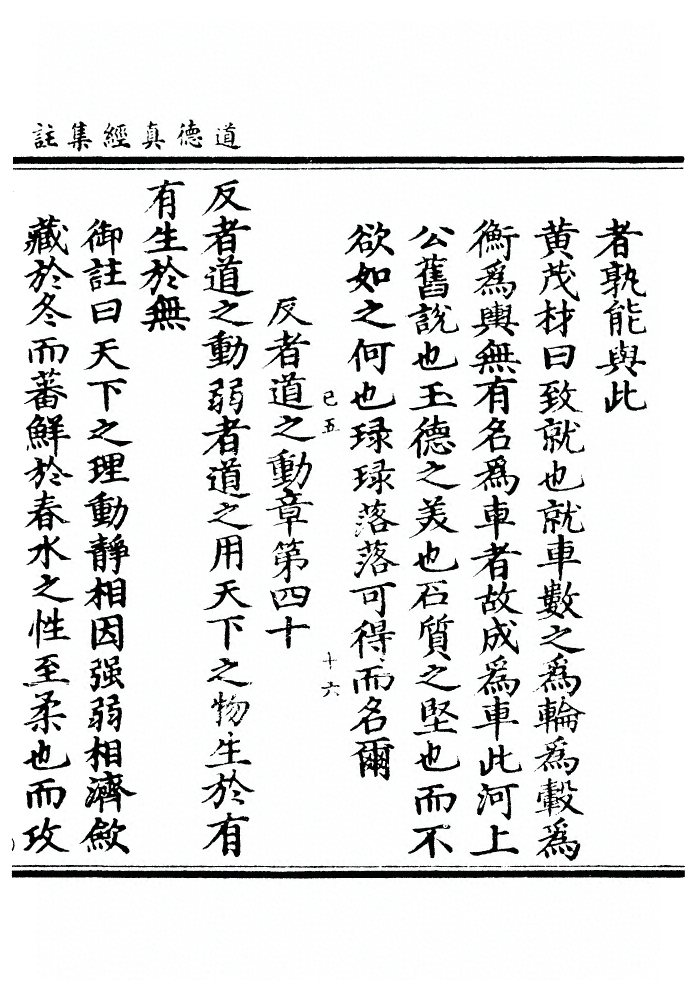 道德真經集註
者孰能與此
黄茂材曰致就也就車數之爲輪爲轂爲
衡爲輿無有名爲車者故成爲車此河上
公舊說也玉德之美也石質之堅也而不
欲如之何也琭琭落落可得而名爾
己五
十六
反者道之動章第四十
反者道之動弱者道之用天下之物生於有
有生於無
御註曰天下之理動靜相因强弱相濟斂
藏於冬而蕃鮮於春水之性至柔也而攻